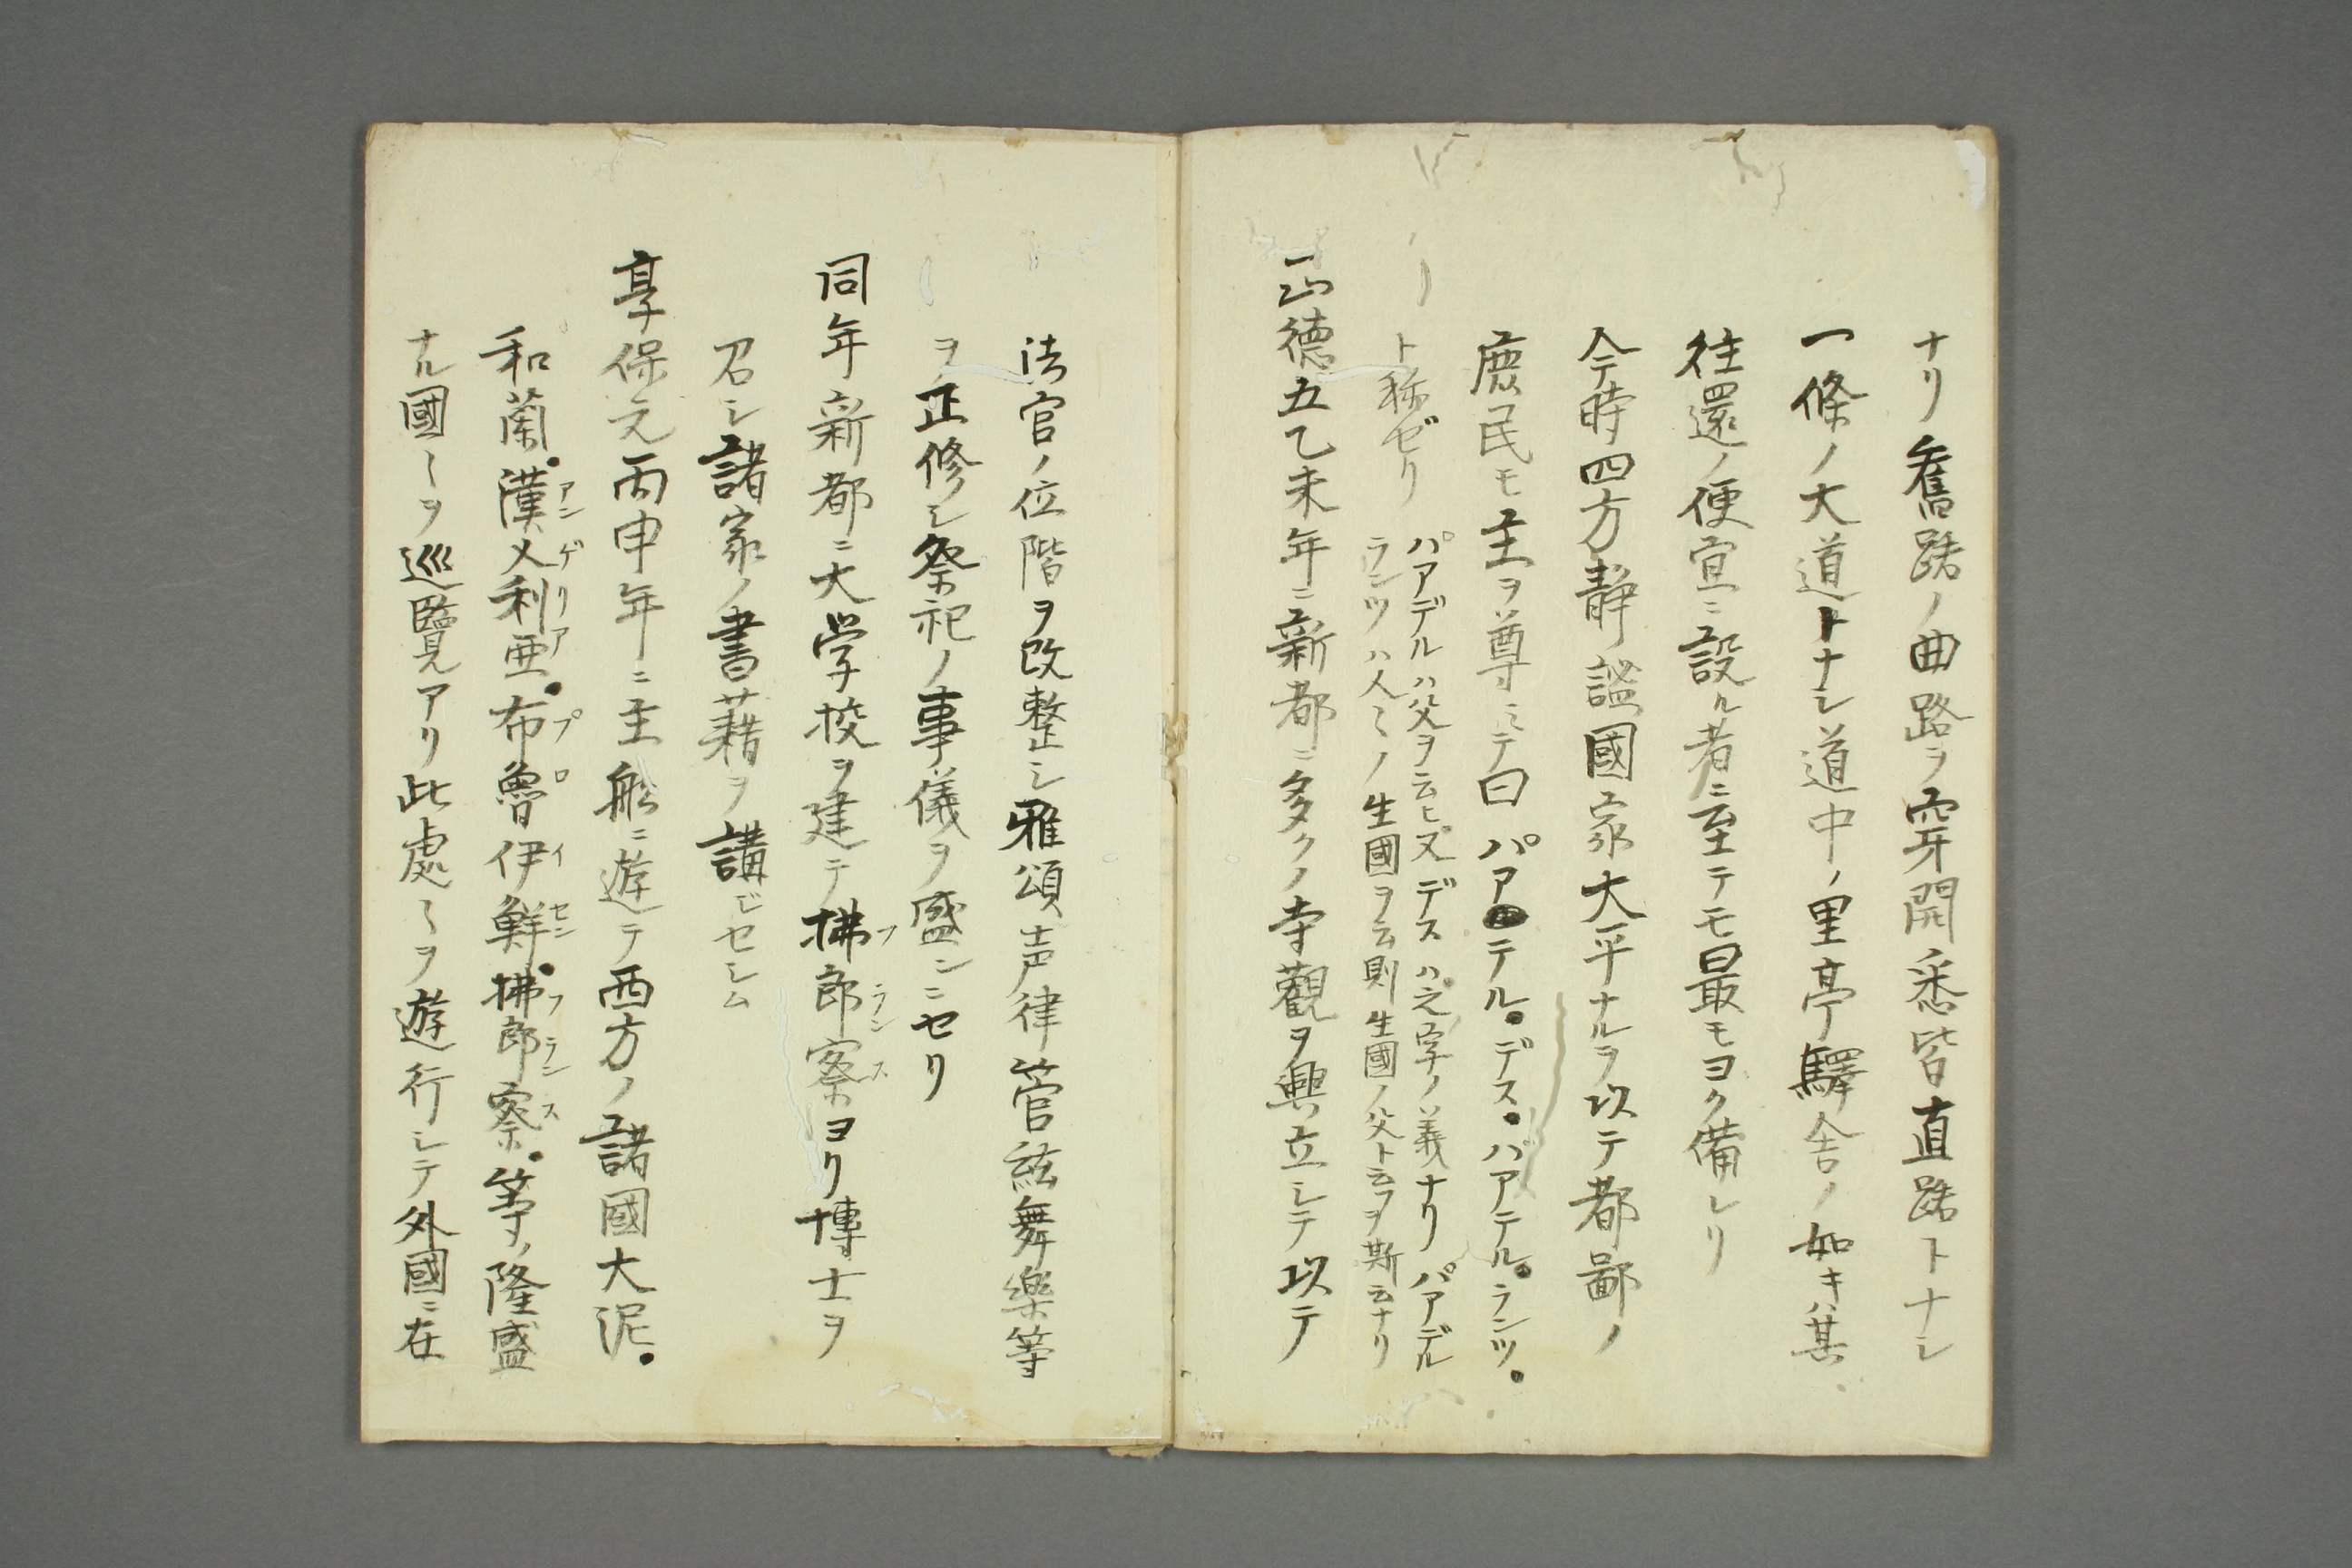 ナリ舊蹊ノ曲路ヲ穿開悉皆直蹊トナシ
一條ノ大道トナシ道中ノ里亭驛舎ノ如キハ其
往還ノ便宜ニ設ル者ニ至テモ最モヨク備レリ
今時四方静謐國家大平ナルヲ以テ都鄙ノ
庶民モ主ヲ尊ミテ曰パアテル。デス。パアテル。ランツ。
ト称ゼリ
パアデルハ父ヲ云ヒ又デスハ之字ノ義ナリパアデル
ランツハ人〻ノ生國ヲ云則生國ノ父ト云ヿヲ斯云ナリ
正德五乙未年ニ新都ニ多クノ寺觀ヲ興立シテ以テ
法官ノ位階ヲ改整シ雅頌声律管絃舞樂等
ヲ正修シ祭祀ノ事儀ヲ盛ンニセリ
同年新都ニ大学校ヲ建テ拂郎察フランスヨリ博士ヲ
召シ諸家ノ書藉ヲ講ジセシム
享保元丙申年ニ主舩ニ遊テ西方ノ諸國大泥。
和蘭。漢乂利亜アンゲリア。布魯伊鮮プロイセン。拂郎察フランス。等ノ隆盛
ナル國〻ヲ巡覽アリ此處〻ヲ遊行シテ外國ニ在